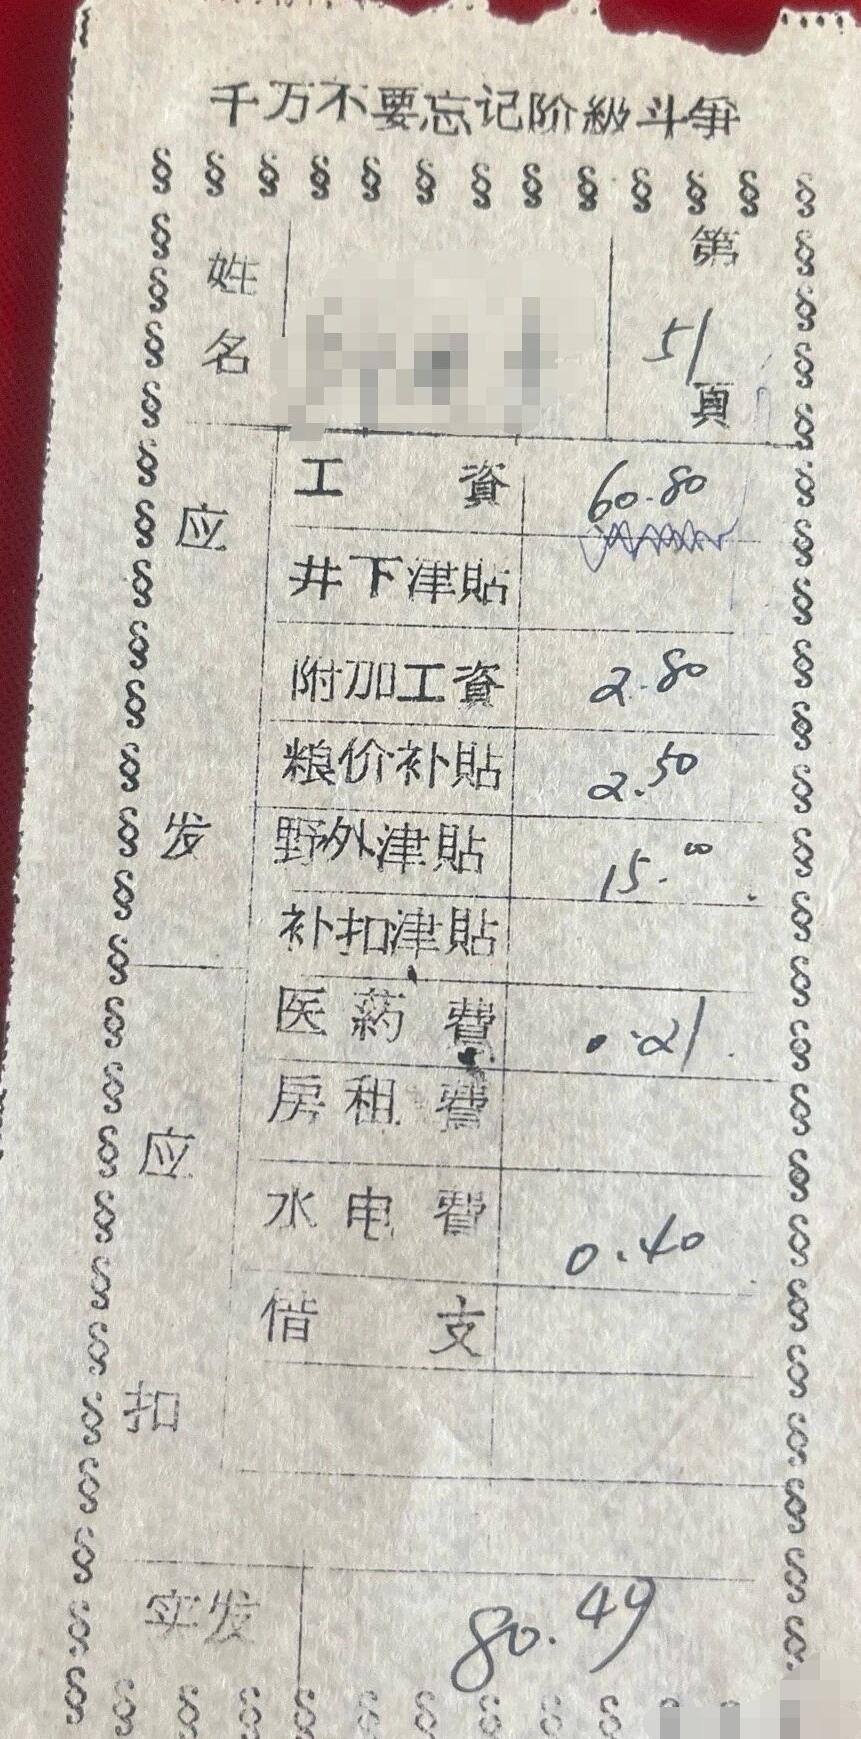 千万不要忘记阶級斗争
姓名 第51頁
应发
工資 60.80
井下津貼
附加工資 2.80
粮价补貼 2.50
野外津貼 15.00
补扣津貼
应扣
医葯費 0.21
房租費
水电費 0.40
借支
实发 80.49